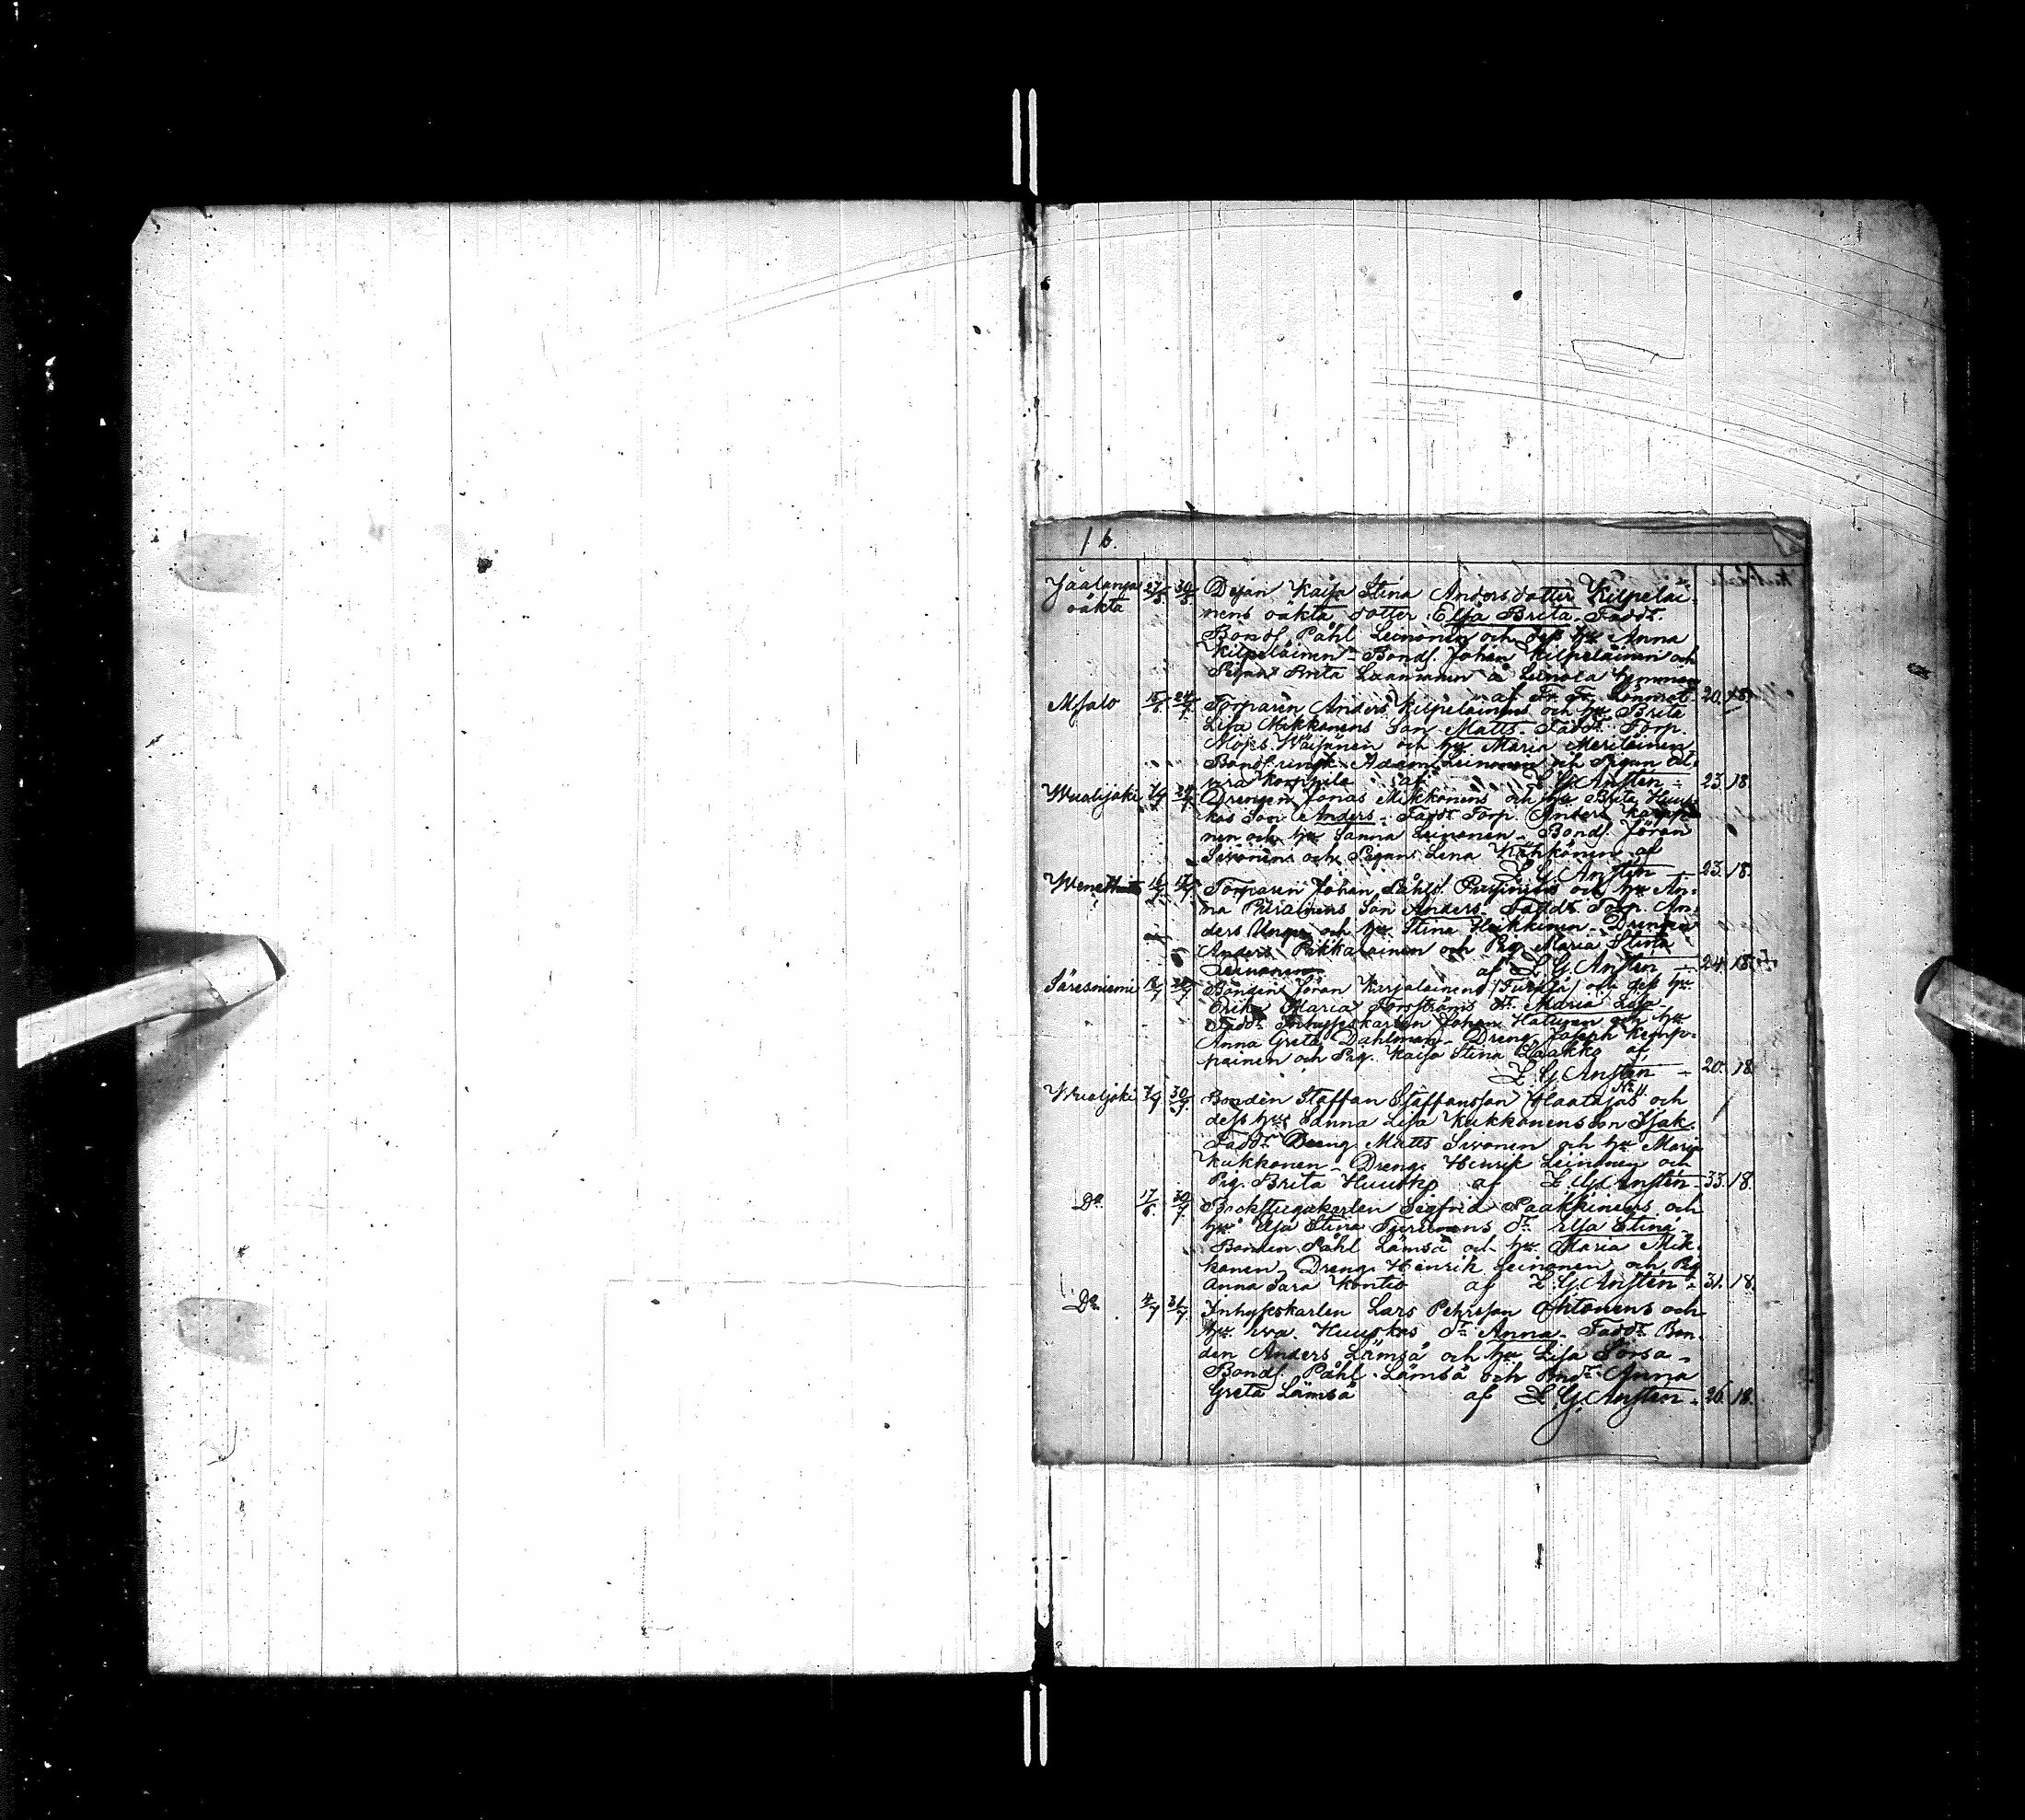 16.
Jäälanga 27/5. 30/5. Pigan Kaisa Stina Andersdotter Kilpeläi-
oäkta nens oäkta dotter Elsa Brita. Fadd.r
Bond. Påhl Leinonen och dess hu. Anna
Kilpeläinen - Bonds. Johan Kilpeläinen och
Pigan Brita
af 20. 18.
Torparen Anders Kilpeläinens och hu. Brita
Lisa Mikkonens Son Matts. Fadd.r Torp.
Moses Wäisänen och hu. Maria Meriläinen
Adam Leinonen och Pigan
af L. G. Ansten - 23. 18.
Wualijoki Drengen Jonas Mikkonens och hu. Brita Huus-
kos Son Anders - Fadd.r Torp. Anders Karppi-
nen och hu. Sanna Leinonen - Bonds. Jöran
Sivonen och Pigan Lena af
L. G. Ansten - 23. 18.
Torparen Johan Påhls. och hu. An-
na Son Anders. Fadd.r Torp. An-
ders och hu. Stina Heikkinen - Drengen
Anders Pikkarainen och Pig. Maria Stina
Leinonen af L. G. Ansten - 24. 18.
Säresniemi Bonden Jöran Karjalainens (Turula) och dess hu.
Maria Forsströms D.r Maria Lisa -
Fadd.r Inhyseskarlen Johan Hatunen och hu.
Anna Greta Dahlman - Dreng. Joseph Kemp-
painen och Pig. Kaisa Stina Laakko af
L. G. Ansten - 20. 18.
Wualijoki 7/7 30/7. Bonden Staffan Staffansson Haatajas N:o 11 och
dess hu. Sanna Lisa Kukkonens Son Isak.
Fadd.r Dreng. Matts Sivonen och hu. Maria
Kukkonen - Dreng. Henrik Leinonen och
Pig. Brita Huusko af L. G. Ansten - 33. 18.
D:o 17/6. 30/7 Backstugukarlen Sigfrid Paakkinens och
hu. Elsa Stina Turunens D.r Elsa Stina -
Bonden Påhl Lämsä och hu. Maria Mik-
konen - Dreng. Henrik Leinonen och Pig.
Anna Sara Kontio af L. G. Ansten - 31. 18.
D:o 4/7 31/7. Inhyseskarlen Lars Pehrsson Ahtonens och
hu. Eva Huuskos D.r Anna - Fadd.r Bon-
den Anders Lämsä och hu. Lisa Sorsa -
Bonds. Påhl Lämsä och Bondr. Anna
Greta Lämsä af L. G. Ansten - 26. 18.